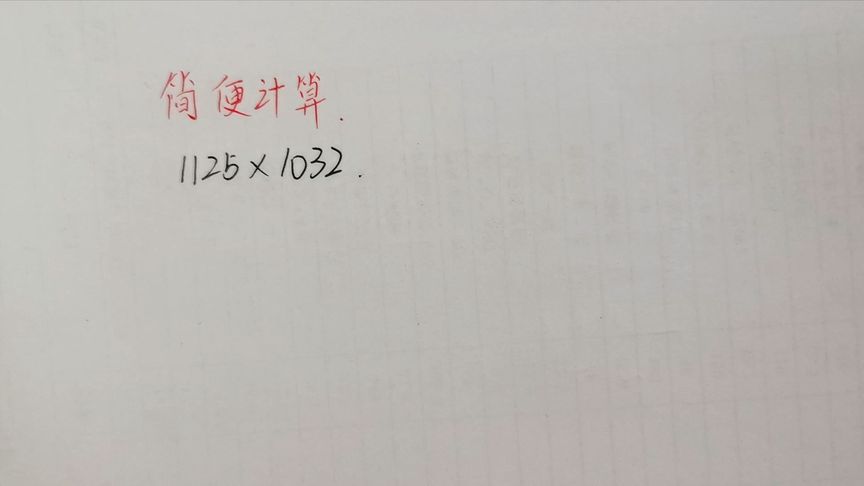 简便计算.
1125×1032.